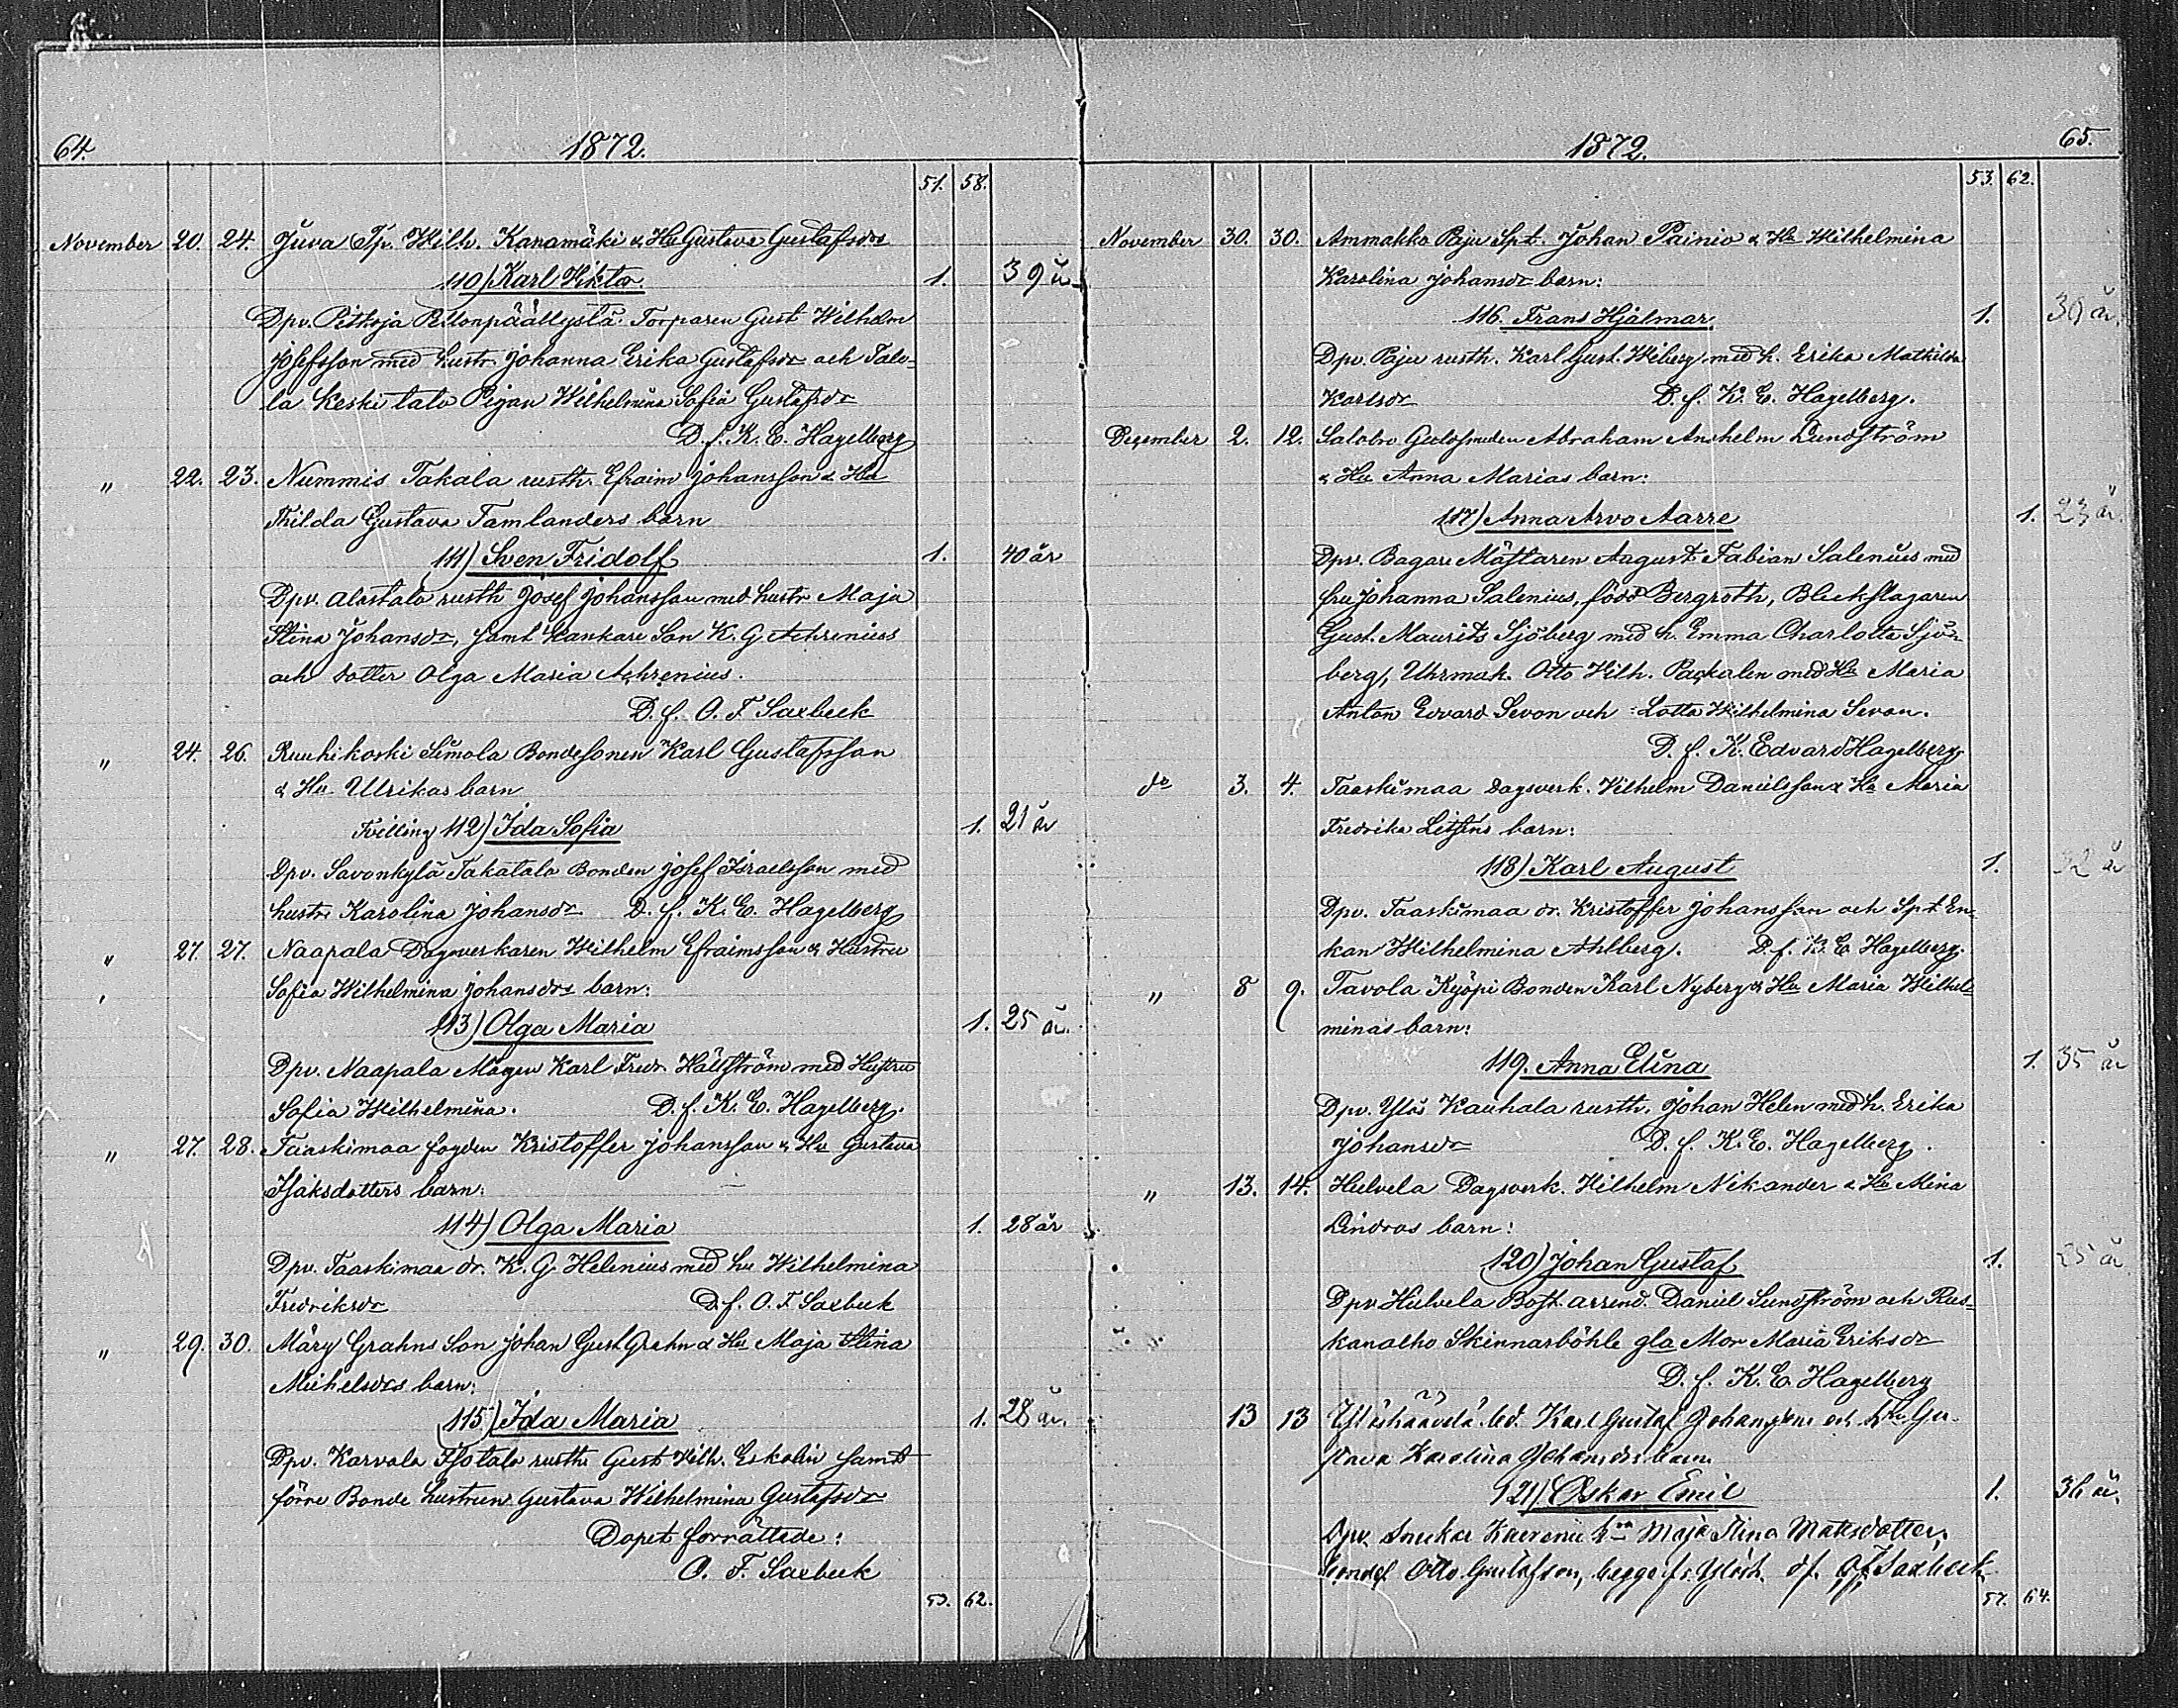 64. 1872.
51. 58.
November 20. 24. Juva Tp. Wilh. Kanamäki & Hu Gustava Gustafsdrs
110) Karl Viktor 1. 39 år
Dpv. Pitkoja Pellonpäällystä Torparen Gust Wilhelm
Josefsson med hustr. Johanna Erika Gustafsdr och Talo-
la Keskitalo Pigan Wilhelmina Sofia Gustafsdr
D. f. K. E. Hagelberg
" 22. 23. Nummis Takala rusth. Efraim Johansson & Hu
Thilda Gustava Tamlanders barn
111) Sven Fridolf 1. 40 år
Dpv. Alastalo rusth Josef Johansson med hustr Maja
Stina Johansdr, samt Son K. G. Achrenius
och dotter Olga Maria Achrenius.
D. f. O. F. Saxbeck
" 24. 26. Ruuhikoski Simola Bondesonen Karl Gustafsson
& Hu Ulrikas barn
Tvilling 112) Ida Sofia 1. 21 år
Dpv. Savonkylä Takatalo Bonden Josef Israelsson med
hustr. Karolina Johansdr D. f. K. E. Hagelberg
" 27. 27. Naapala Dagsverkaren Wilhelm Efraimsson & Hustru
Sofia Wilhelmina Johansdrs barn:
113) Olga Maria 1. 25 år.
Dpv. Naapala Mågen Karl Fredr. Hällström med Hustru
Sofia Wilhelmina. D. f. K. E. Hagelberg.
" 27. 28. Taaskimaa fogden Kristoffer Johansson & Hu Gustava
Isaksdotters barn:
114) Olga Maria 1. 28 år
Dpv. Taaskimaa dr. K. G. Helenius med hu Wilhelmina
Fredriksdr D. f. O. F. Saxbeck
" 29. 30. Märy Grahns Son Johan Gust. Grahn & Hu Maja Stina
Michelsdrs barn:
115) Ida Maria 1. 28 år.
Dpv. Karvala Isotalo rusth. Gust. Wilh. Eskolin samt
förre Bonde hustrun Gustava Wilhelmina Gustafsdr
Dopet förrättade:
O. F. Saxbeck
53. 62.
1872. 65.
53. 62.
November 30. 30. Ammakko Paju Spt. Johan Painio & Hu Wilhelmina
Karolina Johansdr barn:
116. Frans Hjalmar 1. 30 år.
Dpv. Paju rusth. Karl Gust. Wiberg med h. Erika Mathilda
Karlsdr D. f. K. E. Hagelberg.
December 2. 12. Salobo Abraham Anshelm Lundström
& Hu Anna Marias barn:
117) Anna Arvo Aarre 1. 23 år.
Dpv. Bagare Mästaren August Fabian Salenius med
fru Johanna Salenius, född Bergroth, Bleckslagaren
Gust. Maurits Sjöberg med h. Emma Charlotta Sjö-
berg, Uhrmak. Otto Wilh. Packalen med Hu Maria
Anton Edvard Sevon och Lotta Wilhelmina Sevon.
D. f. K. Edvard Hagelberg
do 3. 4. Taaskimaa Dagsverk. Wilhelm Danielsson & Hu Maria
Fredrika Litséns barn:
118) Karl August 1. 32 år
Dpv. Taaskimaa dr. Kristoffer Johansson och Spt En-
kan Wilhelmina Ahlberg. D. f. K. E. Hagelberg.
" 8 9. Tavola Kyöpi Bonden Karl Nyberg & Hu Maria Wilhel-
minas barn:
119. Anna Elina 1. 35 år
Dpv. Ylös Kauhala rusth. Johan Helen med h. Erika
Johansdr D. f. K. E. Hagelberg.
" 13. 14. Hulvela Dagsverk. Wilhelm Nikander & Hu Mina
Lindras barn:
120) Johan Gustaf 1. 25 år
Dpv. Hulvela Bost. arrend. Daniel Sundström och Rus-
kanalho Skinnarböhle gla Mor Maria Eriksdr
D. f. K. E. Hagelberg
13 13 Karl Gustaf Johansson och hu Gu-
stava Karolina Johansdrs barn
121) Oskar Emil 1. 36 år.
Dpv. Snickar hu Maja Stina Matsdotter,
Otto Gustafson, begge fr. D. f. O. F. Saxbeck
57. 64.